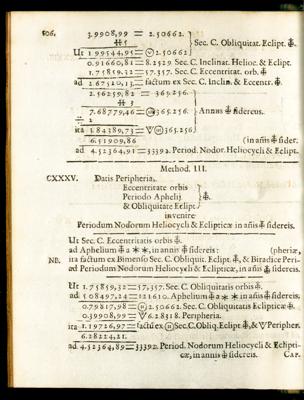 106. 3.9908,99 = 2.50662.
Sec. C. Obliquitat. Eclipt.
Ut 1.99544,95 = 2.50662
0.91660,81 = 8.2529. Sec. C. Inclinat. Helioc. & Eclipt.
1.75859,32 = 57.357. Sec. C. Eccentritat. orb.
ad 2.67520,13. factum ex Sec. C. Inclin. & Eccentr.
2.56259,82 = 365.256.
3
7.68779,46 = 365.256. Annus sidereus.
2
ita 3.84389,73 = 365.256
6.51909,86 (in añis sider.
ad 4.52364,91 = 33392. Period. Nodor. Heliocycli & Eclipt.
Method. III.
CXXXV. Datis Peripheria,
Eccentritate orbis
Periodo Aphelij
& Obliquitate Eclipt.
invenire
Periodum Nodorum Heliocycli & Eclipticæ in añis sidereis.
Ut Sec. C. Eccentritatis orbis
ad Aphelium a * *, in annis sidereis: (pheriæ,
NB. ita factum ex Bimenso Sec. C. Obliquit. Eclipt. , & Biradice Peri-
ad Periodum Nodorum Heliocycli & Eclipticæ, in añis sidereis.
Ut 1.75859,32 = 57,357. Sec. C. Obliquitatis orbis
ad 5.08497,24 = 121610. Aphelium a * * in añis sidereis.
0.79817,98 2.50662. Sec. C. Obliquitatis Eclipticæ
0.39908,99 = 6.28318. Peripheria.
ita 1.19726,97 = factũ ex Sec. C. Obliq. Eclipt. , & Peripher.
6.28224,21.
ad 4.52364,89 = 33392. Period. Nodorum Heliocycli & Eclipti-
cæ, in annis sidereis. Cap.